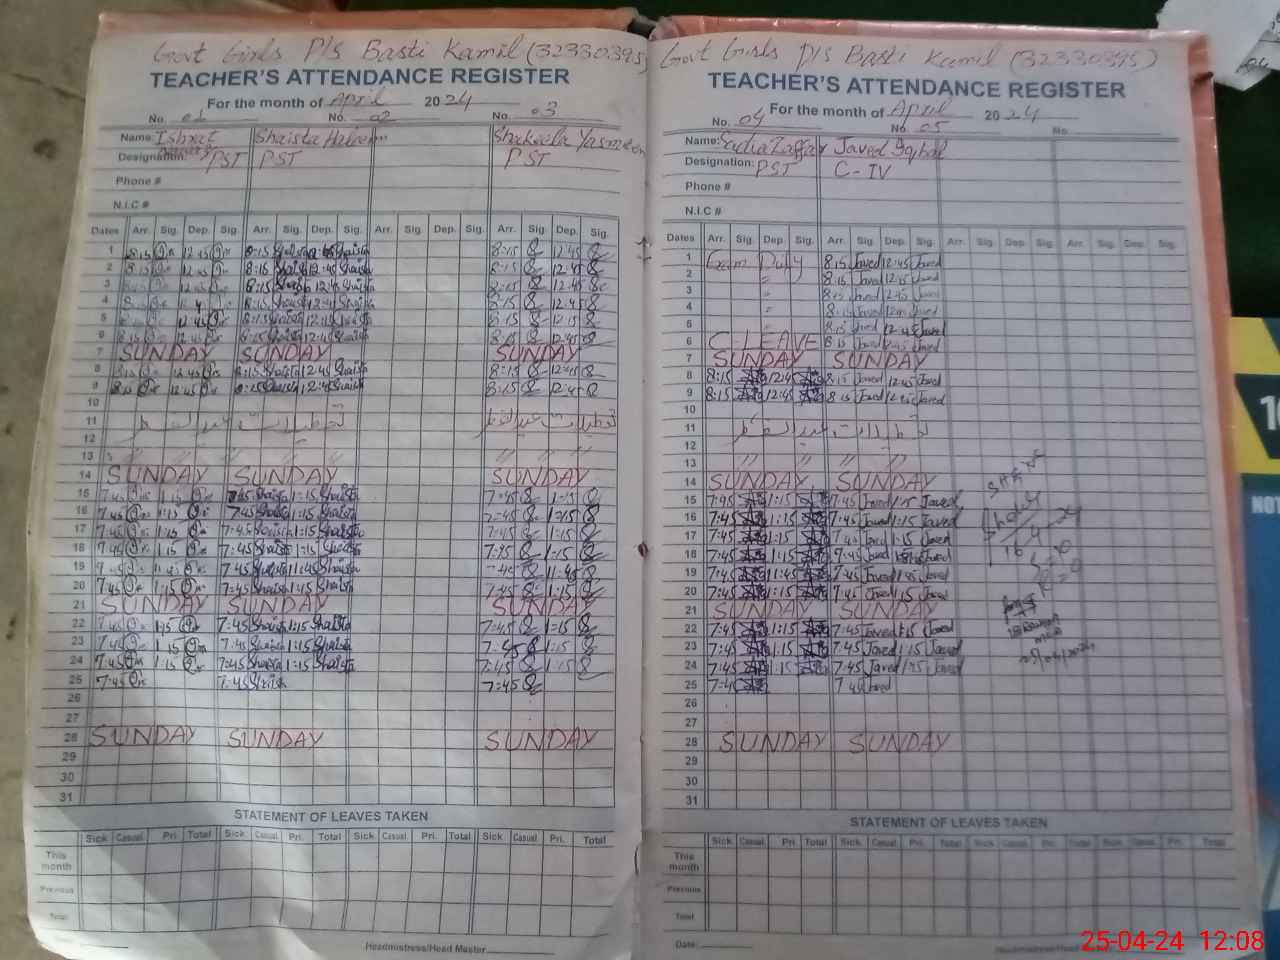 Govt Girls P/S Basti Kamil (32330395)
TEACHER'S ATTENDANCE REGISTER
For the month of April 2024
No. 01 No. 02 No. 03
Name: Ishrat Shaista Haleem Shakeela Yasmeen
Designation: PST PST PST
Phone #
N.I.C #
Dates Arr. Sig. Dep. Sig. Arr. Sig. Dep. Sig. Arr. Sig. Dep. Sig. Arr. Sig. Dep. Sig.
1 8:15 12:45 8:15 Shaista 12:45 Shaista 8:15 12:45
2 8:15 12:45 8:15 Shaista 12:45 Shaista 8:15 12:45
3 8:15 12:45 8:15 Shaista 12:45 Shaista 8:15 12:45
4 8:15 8:15 Shaista 12:45 Shaista 8:15 12:45
5 8:15 12:45 8:15 Shaista 12:45 Shaista 8:15 12:45
6 8:15 12:45 8:15 Shaista 12:45 Shaista 8:15 12:45
7 SUNDAY SUNDAY SUNDAY
8 8:15 12:45 8:15 Shaista 12:45 Shaista 8:15 12:45
9 8:15 12:45 8:15 Shaista 12:45 Shaista 8:15 12:45
10
11 تعطیلات عید الفطر
12
13 // // // // // //
14 SUNDAY SUNDAY SUNDAY
15 7:45 1:15 7:45 Shaista 1:15 Shaista 7:45 1:15
16 7:45 1:15 7:45 Shaista 1:15 Shaista 7:45 1:15
17 7:45 1:15 7:45 Shaista 1:15 Shaista 7:45 1:15
18 7:45 1:15 7:45 Shaista 1:15 Shaista 7:45 1:15
19 7:45 11:45 7:45 Shaista 11:45 Shaista 7:45 11:45
20 7:45 1:15 7:45 Shaista 1:15 Shaista 7:45 1:15
21 SUNDAY SUNDAY SUNDAY
22 7:45 1:15 7:45 Shaista 1:15 Shaista 7:45 1:15
23 7:45 1:15 7:45 Shaista 1:15 Shaista 7:45 1:15
24 7:45 1:15 7:45 Shaista 1:15 Shaista 7:45 1:15
25 7:45 7:45 Shaista 7:45
26
27
28 SUNDAY SUNDAY SUNDAY
29
30
31
STATEMENT OF LEAVES TAKEN
Sick Casual Pri. Total Sick Casual Pri. Total Sick Casual Pri. Total Sick Casual Pri. Total
This month
Previous
Total
Headmistress/Head Master
Govt Girls P/S Basti Kamil (32330395)
TEACHER'S ATTENDANCE REGISTER
For the month of April 2024
No. 04 No. 05 No.
Name: Sadia Zaffar Javed Iqbal
Designation: PST C-IV
Phone #
N.I.C #
Dates Arr. Sig. Dep. Sig. Arr. Sig. Dep. Sig. Arr. Sig. Dep. Sig. Arr. Sig. Dep. Sig.
1 Exam Duty 8:15 Javed 12:45 Javed
2 " 8:15 Javed 12:45 Javed
3 " 8:15 Javed 12:45 Javed
4 " 8:15 Javed 12:45 Javed
5 " 8:15 Javed 12:45 Javed
6 C. LEAVE 8:15 Javed 12:45 Javed
7 SUNDAY SUNDAY
8 8:15 12:45 8:15 Javed 12:45 Javed
9 8:15 12:45 8:15 Javed 12:45 Javed
10
11 تعطیلات عید الفطر
12
13 // // // //
14 SUNDAY SUNDAY
15 7:45 1:15 7:45 Javed 1:15 Javed
16 7:45 1:15 7:45 Javed 1:15 Javed
17 7:45 1:15 7:45 Javed 1:15 Javed
18 7:45 1:15 7:45 Javed 1:15 Javed
19 7:45 11:45 7:45 Javed Javed
20 7:45 1:15 7:45 Javed 1:15 Javed
21 SUNDAY SUNDAY
22 7:45 1:15 7:45 Javed 1:15 Javed
23 7:45 1:15 7:45 Javed 1:15 Javed
24 7:45 1:15 7:45 Javed 1:15 Javed
25 7:45 7:45 Javed
26
27
28 SUNDAY SUNDAY
29
30
31
25/04/2024
STATEMENT OF LEAVES TAKEN
Sick Casual Pri. Total Sick Casual Pri. Total Sick Casual Pri. Total Sick Casual Pri. Total
This month
Previous
Total
Date:
Headmistress/Head
25-04-24 12:08